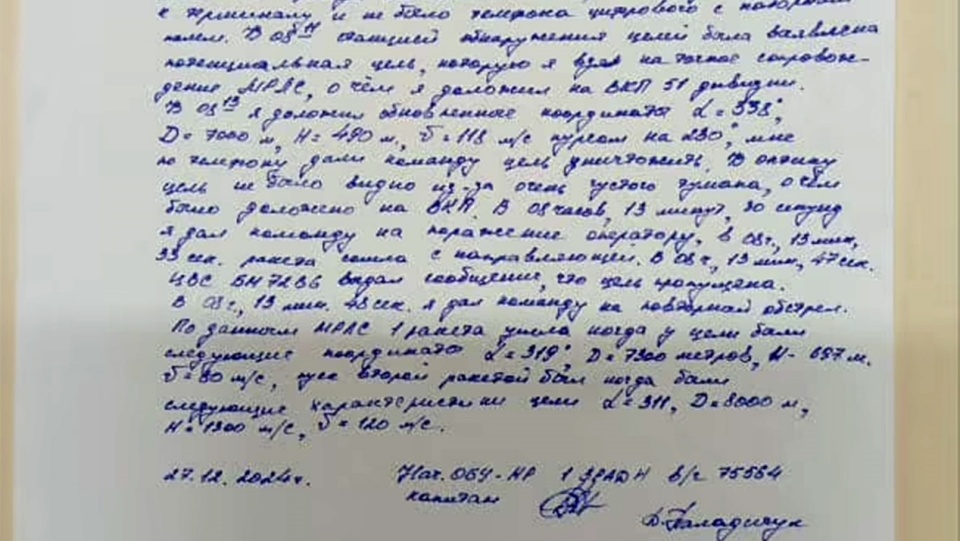 к терминалу и не было телефона цифрового с
полем. В 08¹¹ станцией обнаружения целей была заявлена
потенциальная цель, которую я взял на точное сопровож-
дение МРЛС, о чём я доложил на ВКП 51 дивизии.
В 08¹³ я доложил обновленные координаты α = 338°,
D = 7000 м, H = 490 м, V = 118 м/с курсом на 230°, мне
по телефону дали команду цель уничтожить. В оптику
цель не было видно из-за очень густого тумана, о чём
было доложено на ВКП. В 08 часов, 13 минут, 30 секунд
я дал команду на поражение оператору, в 08 ч, 13 мин,
33 сек. ракета сошла с направляющей. В 08 ч, 13 мин, 47 сек.
ЦВС БМ 72В6 выдал сообщение, что цель пропущена.
В 08 ч, 13 мин. 48 сек. я дал команду на повторный обстрел.
По данным МРЛС 1 ракета ушла когда у цели были
следующие координаты α = 319°, D = 7300 метров, H - 697 м.
V = 80 м/с, пуск второй ракетой был когда были
следующие характеристики цели α = 311, D = 8000 м,
H = 1300 м/с, V = 120 м/с.
27.12.2024 г. Нач. ОБУ - НР 1 ЗРАДН в/ч 75564
капитан
Д. Паладичук